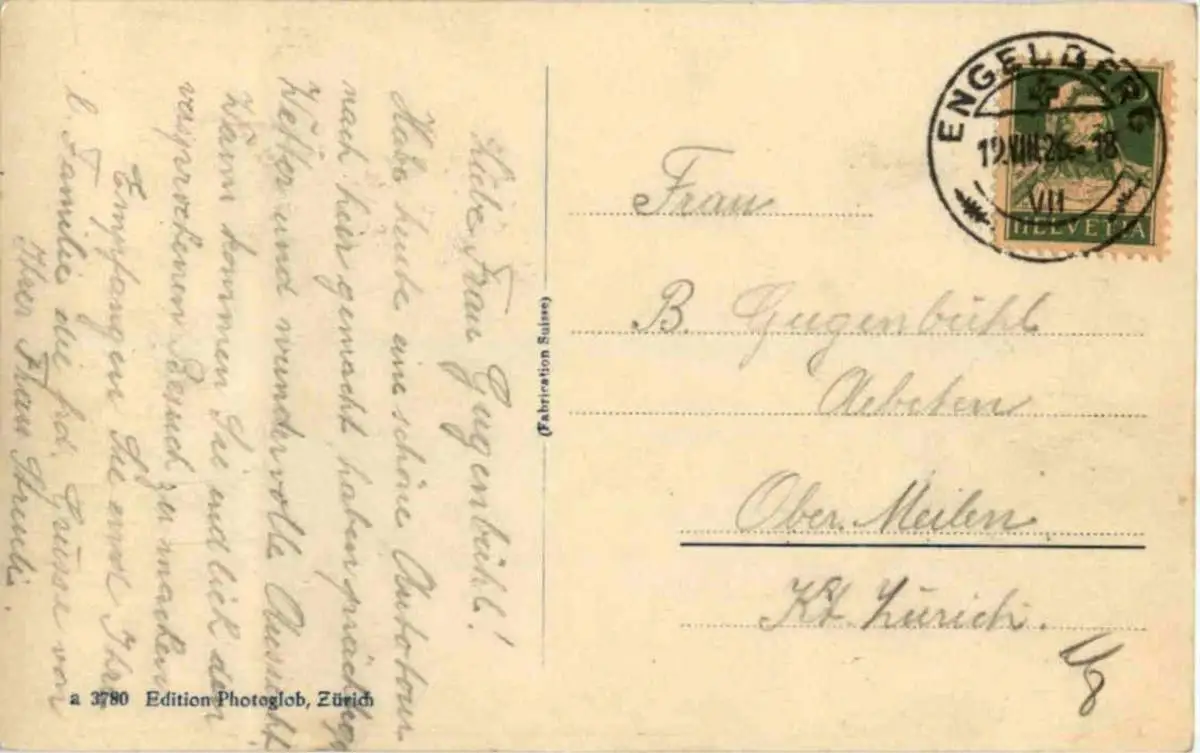 Liebe Frau Gugenbühl!
Habe heute eine schöne Autotour
nach hier gemacht haben prächtiges
Wetter und wundervolle Aussicht
Wann kommen Sie endlich den
versprochenen Besuch zu machen
Empfangen Sie und Ihre
l. Familie die frd. Grüsse von
Ihrer Frau
(Fabrication Suisse)
a 3780 Edition Photoglob, Zürich
ENGELBERG
19.VIII.26 - 18
VII
HELVETIA
Frau
B. Gugenbühl
Aebeten
Ober Meilen
Kt. Zürich.